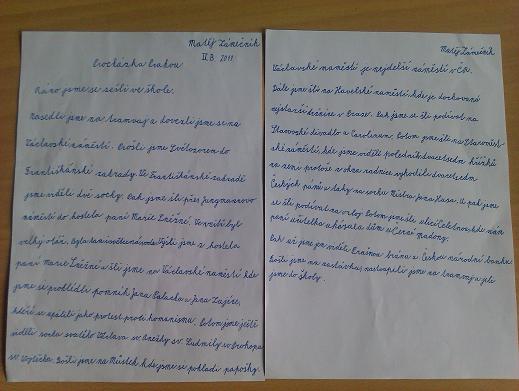 Matěj Zánečník
II.B. 2011
Procházka Prahou
Ráno jsme se sešli ve škole.
Nasedli jsme na tramvaj a dovezli jsme se na
Václavské náměstí. Prošli jsme Světozorem do
Františkánské zahrady. Ve Františkánské zahradě
jsme viděli dvě sochy. Pak jsme šli přes Jungmannovo
náměstí do kostela paní Marie Sněžné. Uvnitř byl
velký oltář. Byla tam i světcená voda. Vyšli jsme z kostela
paní Marie Sněžné a šli jsme na Václavské náměstí kde
jsme se prohlédli pomník Jana Palacha a Jana Zajíce,
kteří se upálili jako protest proti komunismu. Potom jsme ještě
viděli sochu svatého Václava sv. Anežky sv. Ludmily sv. Prokopa
sv. Vojtěcha. Došli jsme na Můstek kde jsme se pokládli papošky.
Matěj Zánečník
Václavské náměstí je nejdelší náměstí v ČR.
Dále jsme šli na Havelské náměstí, kde je dochovaná
nejstarší tržnice v Praze. Pak jsme se šli podívat na
Stavovské divadlo a Carolinum. Potom jsme šli na Staroměst-
ské náměstí, kde jsme viděli poledník, dvacetsedm křížků
na zemi protože z okna radnice vyhodili dvacetsedm
Českých pánů a taky na sochu Mistra Jana Husa. A pak jsme
se šli podívat na orloj. Potom jsme šli ulicí Celetnou, kde nám
paní učitelka ukázala dům u Černé Madony.
Pak už jsme jen viděli Prašnou bránu a Českou národní banku.
Došli jsme na zastávku, nastoupili jsme na tramvaj a jeli
jsme do školy.